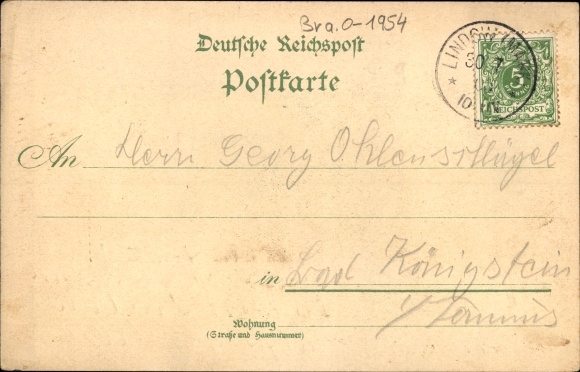 Bra.0-1954
Deutsche Reichspost
Postkarte
5
REICHSPOST
An Herrn Georg Ohlenschlügel
in Bad Königstein
i/Taunus
Wohnung
(Straße und Hausnummer)